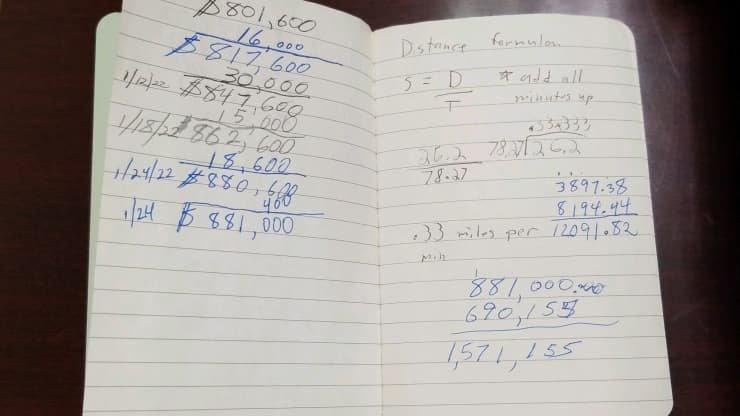 $801,600
16,000
$817,600
30,000
1/12/22 $847,600
15,000
1/18/22 $862,600
18,600
1/24/22 $880,600
400
1/24 $881,000
Distance formulas
S = D
T
* add all
minutes up
26.2
78.27
.33333
78.27 26.2
3897.38
8194.44
12091.82
.33 miles per
min
1
881,000.00
690,155
1,571,155